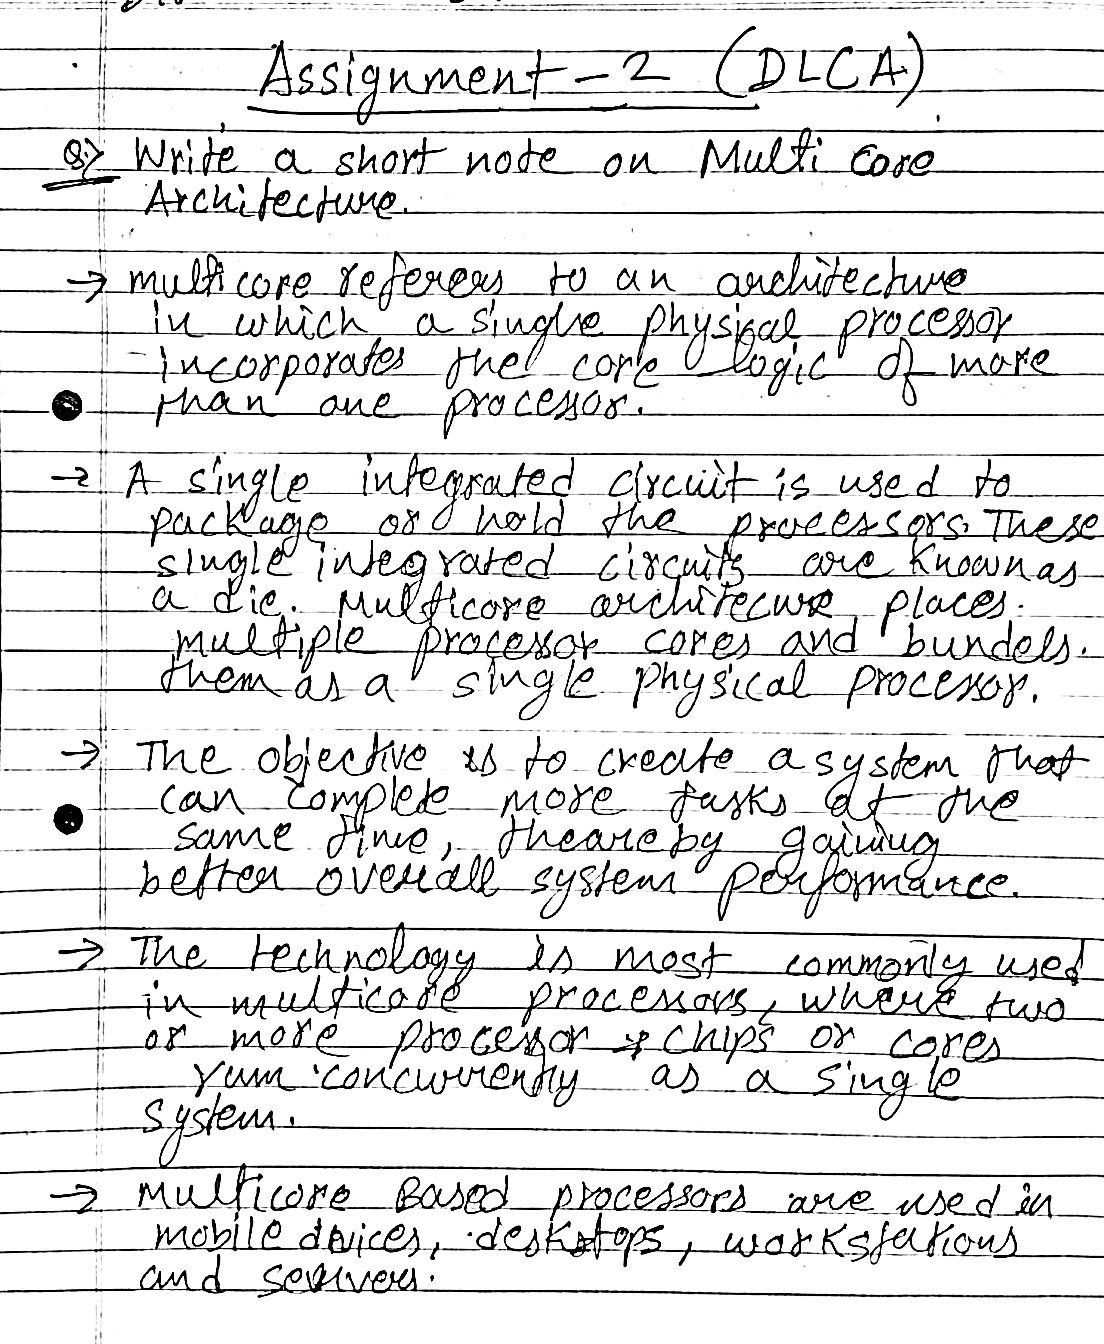 Assignment-2 (DLCA)
Q> Write a short note on Multi Core
Architecture.
→ multicore referers to an architecture
in which a single physical processor
incorporates the core logic of more
than one processor.
→ A single integrated circuit is used to
package or hold the processors. These
single integrated circuits are known as
a die. Multicore architecure places
multiple processor cores and bundels.
them as a single physical processor.
→ The objective is to create a system that
can complete more tasks at the
same time, theareby gaining
better overall system performance.
→ The technology is most commonly used
in multicore processors, where two
or more processor chips or cores
rum concurrently as a single
system.
→ Multicore Based processors are used in
mobile dvices, desktops, workstations
and servers.